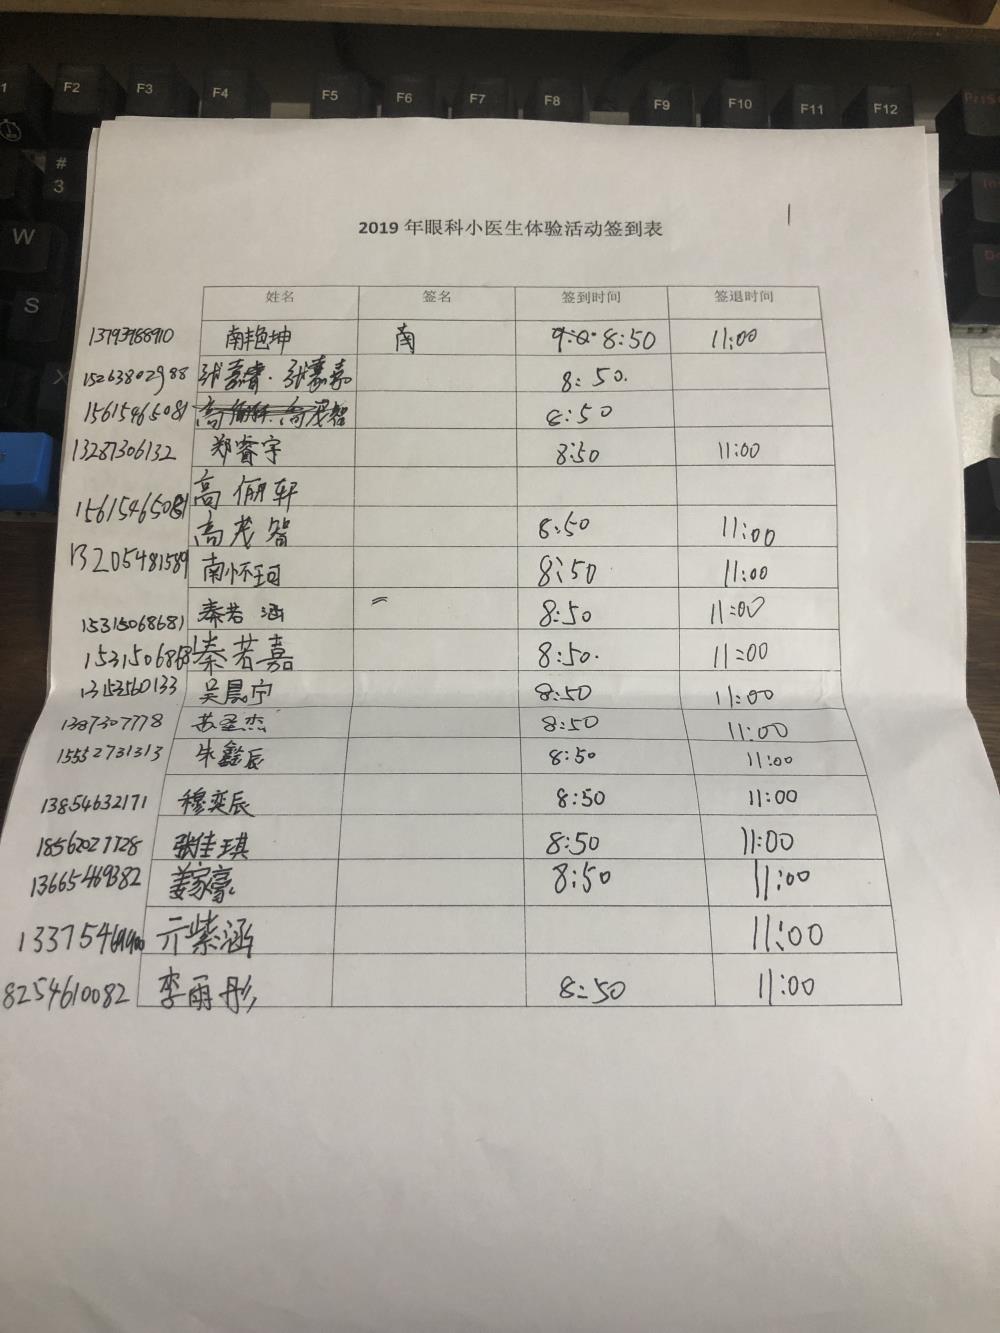 F2 F3 F4 F5 F6 F7 F8 F9 F10 F11 F12
#
3
W
S
X
2019 年眼科小医生体验活动签到表
姓名 签名 签到时间 签退时间
13793988910 南艳坤 南 8:50 11:00
15263802988 张嘉睿·张嘉嘉 8:50.
15615465081 高俪轩 高茂智 8:50
13287306132 郑睿宇 8:50 11:00
高俪轩
15615465081 高茂智 8:50 11:00
13205481589 南怀珂 8:50 11:00
15315068681 秦若涵 〃 8:50 11:00
1531506868 秦若嘉 8:50. 11:00
13153560133 吴晨宁 8:50 11:00
1387307778 苏圣杰 8:50 11:00
15552731313 朱鑫辰 8:50 11:00
13854632171 穆奕辰 8:50 11:00
18562027728 张佳琪 8:50 11:00
13665469382 姜家豪 8:50 11:00
亓紫涵 11:00
8254610082 李雨彤 8:50 11:00